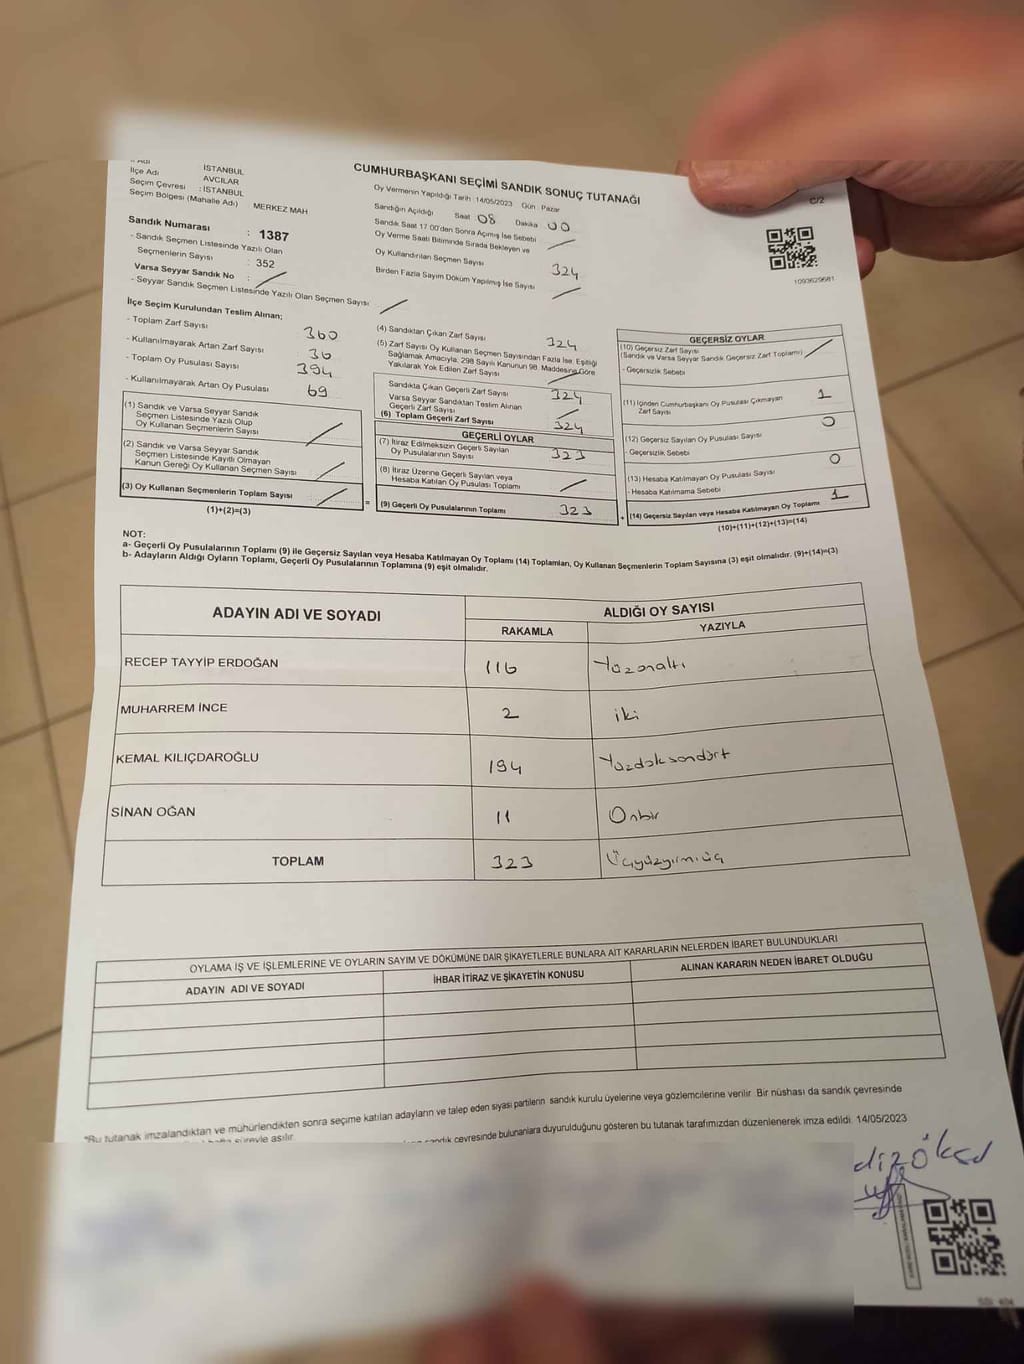 CUMHURBAŞKANI SEÇİMİ SANDIK SONUÇ TUTANAĞI
C/2
İSTANBUL
İlçe Adı AVCILAR
Seçim Çevresi : İSTANBUL
Seçim Bölgesi (Mahalle Adı) MERKEZ MAH
Oy Vermenin Yapıldığı Tarih : 14/05/2023 Gün : Pazar
Sandığın Açıldığı Saat 08 Dakika 00
Sandık Saat 17.00'den Sonra Açılmış İse Sebebi
Oy Verme Saati Bitiminde Sırada Bekleyen ve
Oy Kullandırılan Seçmen Sayısı
324
Birden Fazla Sayım Döküm Yapılmış İse Sayısı
1093629681
Sandık Numarası : 1387
- Sandık Seçmen Listesinde Yazılı Olan
Seçmenlerin Sayısı : 352
Varsa Seyyar Sandık No :
- Seyyar Sandık Seçmen Listesinde Yazılı Olan Seçmen Sayısı
İlçe Seçim Kurulundan Teslim Alınan;
- Toplam Zarf Sayısı 360
- Kullanılmayarak Artan Zarf Sayısı 36
- Toplam Oy Pusulası Sayısı 394
- Kullanılmayarak Artan Oy Pusulası 69
(1) Sandık ve Varsa Seyyar Sandık
Seçmen Listesinde Yazılı Olup
Oy Kullanan Seçmenlerin Sayısı
(2) Sandık ve Varsa Seyyar Sandık
Seçmen Listesinde Kayıtlı Olmayan
Kanun Gereği Oy Kullanan Seçmen Sayısı
(3) Oy Kullanan Seçmenlerin Toplam Sayısı
(1)+(2)=(3)
=
(4) Sandıktan Çıkan Zarf Sayısı 324
(5) Zarf Sayısı Oy Kullanan Seçmen Sayısından Fazla İse, Eşitliği
Sağlamak Amacıyla, 298 Sayılı Kanunun 98. Maddesine Göre
Yakılarak Yok Edilen Zarf Sayısı
Sandıkta Çıkan Geçerli Zarf Sayısı 324
Varsa Seyyar Sandıktan Teslim Alınan
Geçerli Zarf Sayısı
(6) Toplam Geçerli Zarf Sayısı 324
GEÇERLİ OYLAR
(7) İtiraz Edilmeksizin Geçerli Sayılan
Oy Pusulalarının Sayısı 323
(8) İtiraz Üzerine Geçerli Sayılan veya
Hesaba Katılan Oy Pusulası Toplamı
(9) Geçerli Oy Pusulalarının Toplamı 323
+
GEÇERSİZ OYLAR
(10) Geçersiz Zarf Sayısı
(Sandık ve Varsa Seyyar Sandık Geçersiz Zarf Toplamı)
- Geçersizlik Sebebi
(11) İçinden Cumhurbaşkanı Oy Pusulası Çıkmayan
Zarf Sayısı 1
(12) Geçersiz Sayılan Oy Pusulası Sayısı 0
- Geçersizlik Sebebi
(13) Hesaba Katılmayan Oy Pusulası Sayısı 0
- Hesaba Katılmama Sebebi
(14) Geçersiz Sayılan veya Hesaba Katılmayan Oy Toplamı 1
(10)+(11)+(12)+(13)=(14)
NOT:
a- Geçerli Oy Pusulalarının Toplamı (9) ile Geçersiz Sayılan veya Hesaba Katılmayan Oy Toplamı (14) Toplamları, Oy Kullanan Seçmenlerin Toplam Sayısına (3) eşit olmalıdır. (9)+(14)=(3)
b- Adayların Aldığı Oyların Toplamı, Geçerli Oy Pusulalarının Toplamına (9) eşit olmalıdır.
ADAYIN ADI VE SOYADI ALDIĞI OY SAYISI
RAKAMLA YAZIYLA
RECEP TAYYİP ERDOĞAN 116 Yüzonaltı
MUHARREM İNCE 2 iki
KEMAL KILIÇDAROĞLU 194 Yüzdoksandört
SİNAN OĞAN 11 Onbir
TOPLAM 323 Üçyüzyirmiüç
OYLAMA İŞ VE İŞLEMLERİNE VE OYLARIN SAYIM VE DÖKÜMÜNE DAİR ŞİKAYETLERLE BUNLARA AİT KARARLARIN NELERDEN İBARET BULUNDUKLARI
ADAYIN ADI VE SOYADI İHBAR İTİRAZ VE ŞİKAYETİN KONUSU ALINAN KARARIN NEDEN İBARET OLDUĞU
*Bu tutanak imzalandıktan ve mühürlendikten sonra seçime katılan adayların ve talep eden siyasi partilerin sandık kurulu üyelerine veya gözlemcilerine verilir. Bir nüshası da sandık çevresinde
süreyle asılır.
sandık çevresinde bulunanlara duyurulduğunu gösteren bu tutanak tarafımızdan düzenlenerek imza edildi. 14/05/2023